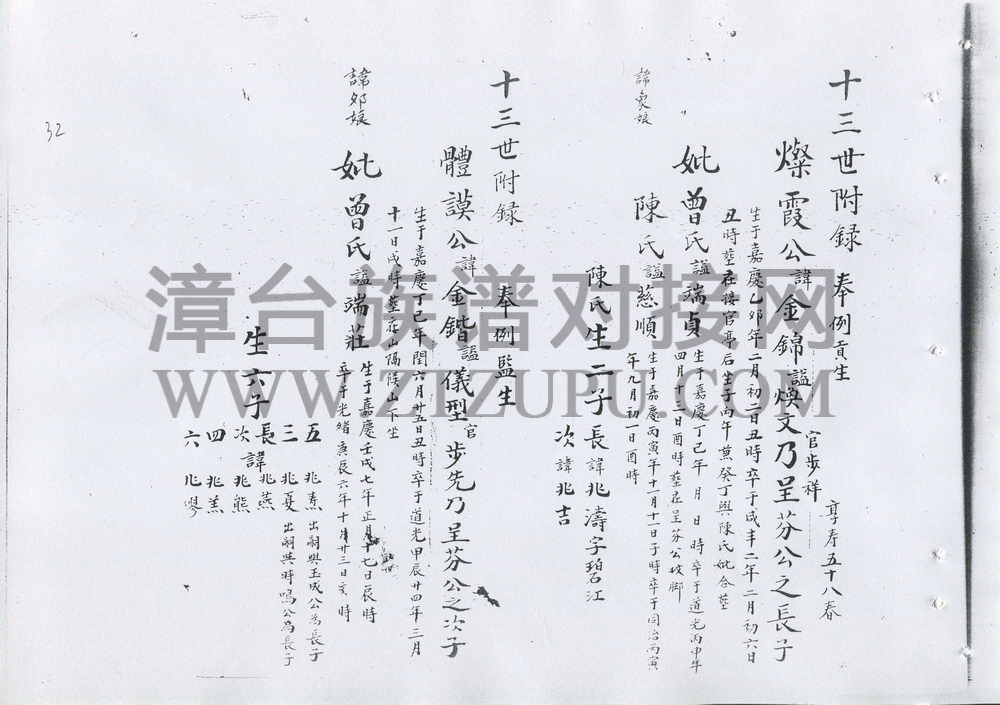 十三世附録 奉例貢生
官步祥 享寿五十八春
燦霞公諱金錦謚煥文乃呈芬公之長子
生于嘉慶乙卯年二月初二日丑時卒于咸丰二年二月初六日
丑時塟在接官亭后坐子向午兼癸丁與陳氏妣合塟
妣曾氏謚端貞生于嘉慶丁巳年 月 日 時卒于道光丙申年
四月十二日酉時塟在呈芬公坟脚
諱奐娘
陳氏謚慈順生于嘉慶丙寅年十一月十一日子時卒于同治丙寅
年九月初一日酉時
陳氏生二子長諱兆濤字碧江
次諱兆吉
十三世附録 奉例監生
體謨公諱金鍇謚儀型官步先乃呈芬公之次子
生于嘉慶丁巳年閏六月廿五日丑時卒于道光甲辰廿四年三月
十一日戌時塟在山隔候山下坐
諱邜娘
妣曾氏謚端莊生于嘉慶壬戌七年正月十七日辰時
卒于光緒庚辰六年十月廿三日亥時
生六子
長諱兆燕
次兆熊
三 兆夏 出嗣與時鳴公為長子
四 兆羔
五 兆焘 出嗣與玉成公為長子
六 兆謬
32
漳台族谱对接网
WWW.ZTZUPU.COM